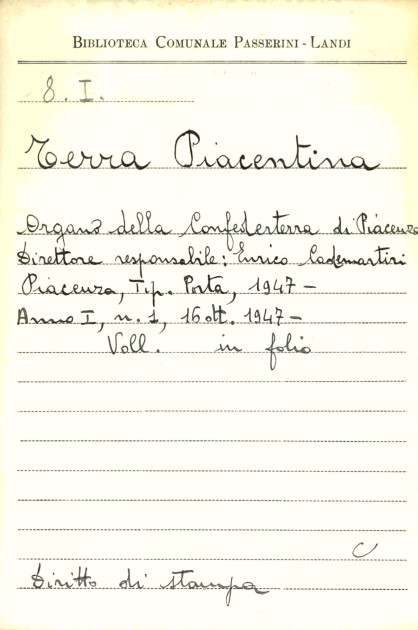 BIBLIOTECA COMUNALE PASSERINI - LANDI
8. I.
Terra Piacentina
Organo della Confederterra di Piacenza
Direttore responsabile: Enrico Cademartiri
Piacenza, Tip. Porta, 1947 -
Anno I, n. 1, 16 ott. 1947 -
Voll. in folio
C
Diritto di stampa